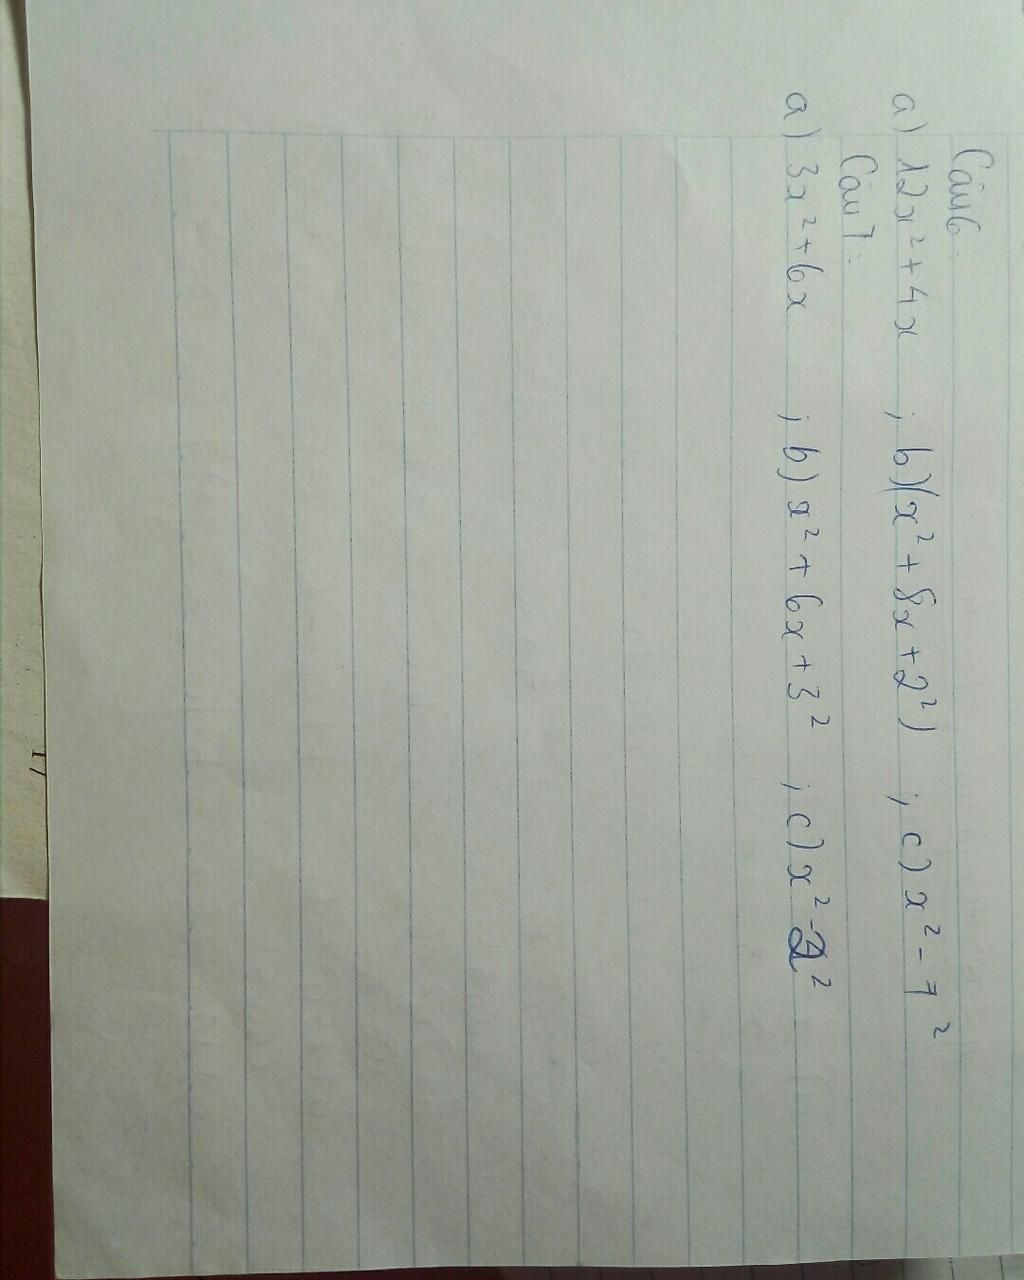 Câu 6.
a) 12x² + 4x ; b) (x² + 8x + 2²) ; c) x² - 7²
Câu 7:
a) 3x² + 6x ; b) x² + 6x + 3² ; c) x² - 2²
17